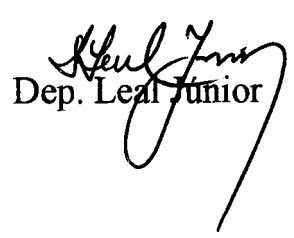 Dep. Leal Júnior